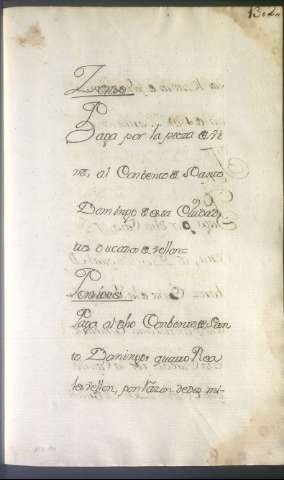 Zenso
Paga por la pieza de Vi
na, al Conbento de Santo
Domingo de esta Ciudad,
ducados de vellon=
Pensiones
Paga al dho Conbento de San
to Domingo, quatro Rea
les vellon, por razon de dos mi-